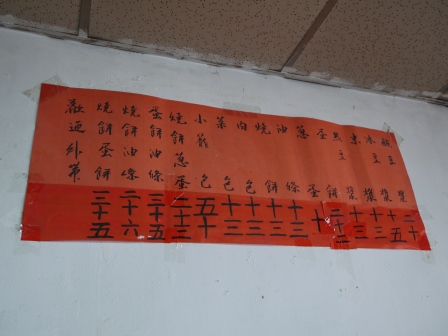 鹹豆漿二十
冰豆漿十五
米漿十三
熱豆漿十三
蛋餅二十二
蔥蛋十
油條十三
燒餅十三
白包十三
菜包十三
小籠包五十
燒餅蔥蛋二十三
蛋餅油條三十五
燒餅油條二十六
燒餅蛋餅三十五
歡迎外帶